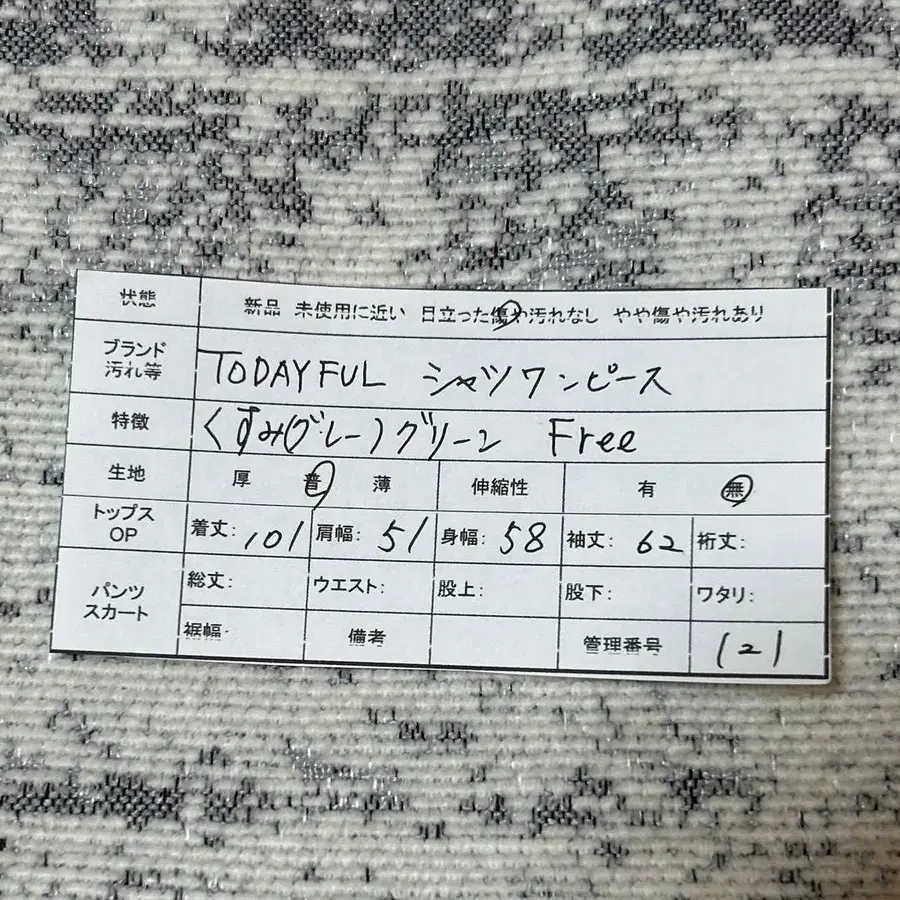 状態 新品 未使用に近い 目立った傷や汚れなし やや傷や汚れあり
ブランド
汚れ等 TODAYFUL シャツワンピース
特徴 くすみ(グレー)グリーン Free
生地 厚 普 薄 伸縮性 有 無
トップス
OP 着丈: 101 肩幅: 51 身幅: 58 袖丈: 62 裄丈:
パンツ
スカート 総丈: ウエスト: 股上: 股下: ワタリ:
裾幅: 備考 管理番号 121